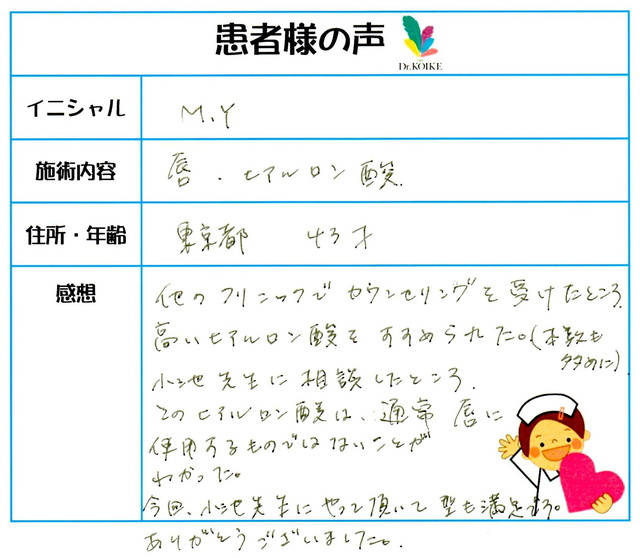 患者様の声
Dr.KOIKE
イニシャル
M.Y
施術内容
唇.ヒアルロン酸.
住所・年齢
東京都 43才
感想
他のクリニックでカウンセリングを受けたところ.
高いヒアルロン酸をすすめられた。(本数も
多めに)
小池先生に相談したところ.
このヒアルロン酸は、通常 唇に
使用するものではないことが
わかった。
今回、小池先生にやって頂いて 型も満足
ありがとうございました。